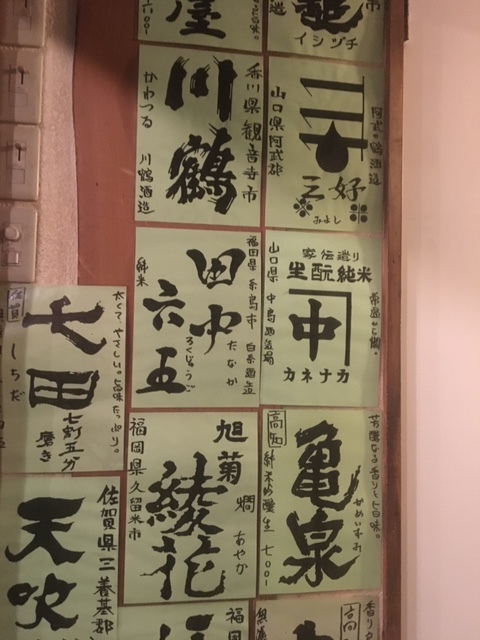 イシヅチ
阿武の鶴酒造
三好
みよし
山口県阿武郡
香川県観音寺市
川鶴
かわつる
川鶴酒造
家伝造り
生酛純米
中
カネナカ
山口県
福岡県糸島市
白糸酒造
田中
たなか
六五
ろくじゅうご
純米
太くてやさしい。旨味たっぷり。
七田
七割五分
磨き
しちだ
佐賀
芳醇なる香りと旨味。
亀泉
かめいずみ
高知
純米吟醸生
七〇〇
旭菊
燗
綾花
あやか
福岡県久留米市
佐賀県三養基郡
天吹
香り
高知
福岡